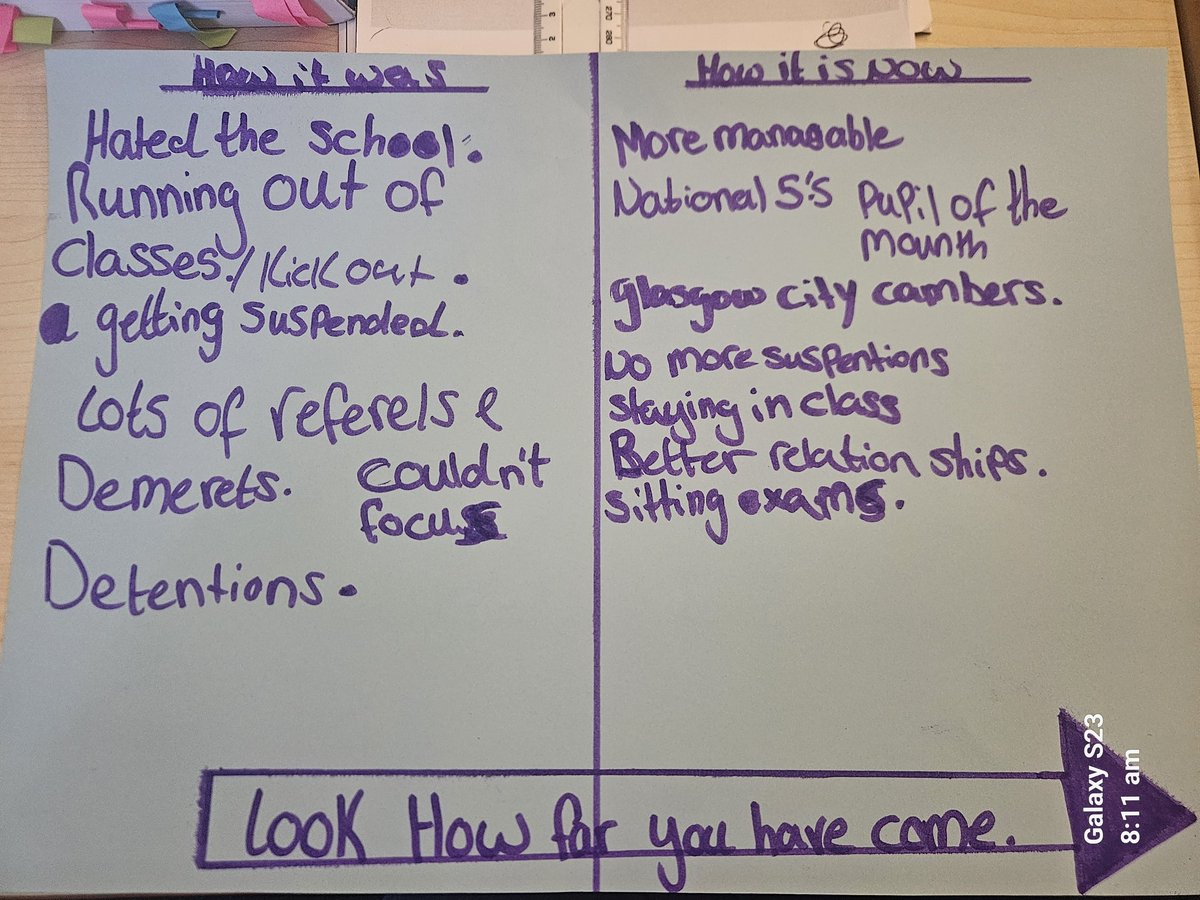 How it was
Hated the school.
Running out of
Classes./Kick out.
getting suspended.
Lots of referels &
Demerets.
couldn't
focus
Detentions.
How it is now
More managable
National 5's
Pupil of the
mounth
glasgow city cambers.
No more suspentions
staying in class
Better relation ships.
sitting exams.
Look How far you have come.
Galaxy S23
8:11 am